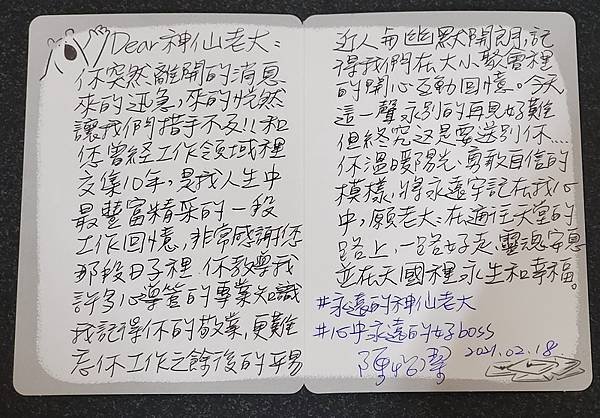 Dear 神仙老大:
你突然離開的消息
來的迅急,來的恍然
讓我們措手不及!!和
您曾经工作領域裡
交集10年,是我人生中
最豐富精采的一段
工作回憶,非常感謝您
那段日子裡.你教學我
許多心導管的專業知識
我記得你的敬業,更難
忘你工作之餘後的平易
近人与幽默開朗,記
得我們在大小聚會裡
的開心互動回憶。今天
這一聲永別的再見好難
但終究还是要送別你.....
你溫暖陽光、勇敢自信的
模樣,將永遠牢記在我心
中,願老大:在通往天堂的
路上,一路好走.靈魂安息
並在天國裡永生和幸福。
#永遠的神仙老大
#心中永遠的好boss
2021.02.18.